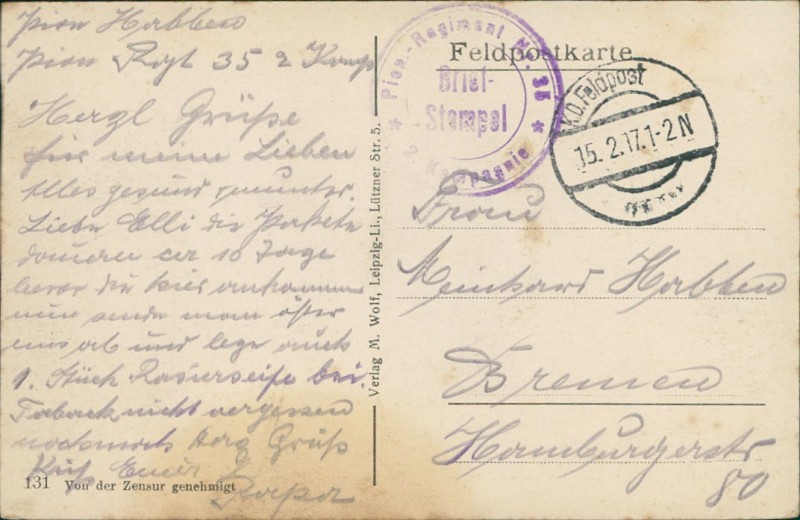 Pion Habben
Pion Rgt 35 2 Komp
Herzl Grüße
für meine Lieben
Alles gesund u munter.
Liebe Elli die Pakete
dauern cer 10 Tage
bevor die hier ankommen
nun sende man öfter
was ab und lege auch
1. Stück Rasierseife bei.
Taback nicht vergessen
nochmals Herz Grüß
Kuß Euer
Papa
131 Von der Zensur genehmigt
Verlag M. Wolf, Leipzig-Li., Lützner Str. 5.
Feldpostkarte
Pion.-Regiment Nr. 35
Brief-
Stempel
* 2. Kompagnie *
K.D. Feldpost
15. 2. 17. 1-2 N
Frau
Meinhard Habben
Bremen
Hamburgerstr
80